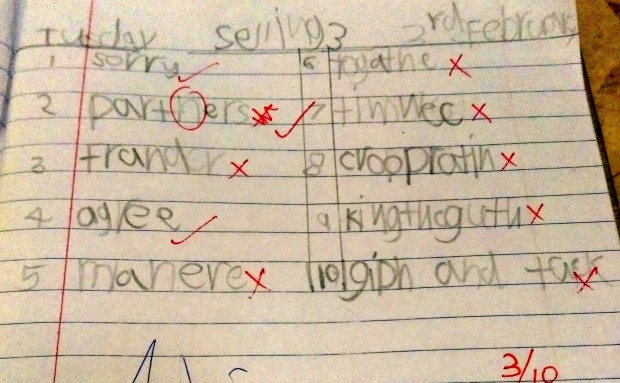 Tuesday selling3 3rd February
1 sorry 6 togathe
2 partners 7 timwec
3 trander 8 crooprotin
4 agree 9 kingthcguth
5 manere 10 giph and tack
3/10